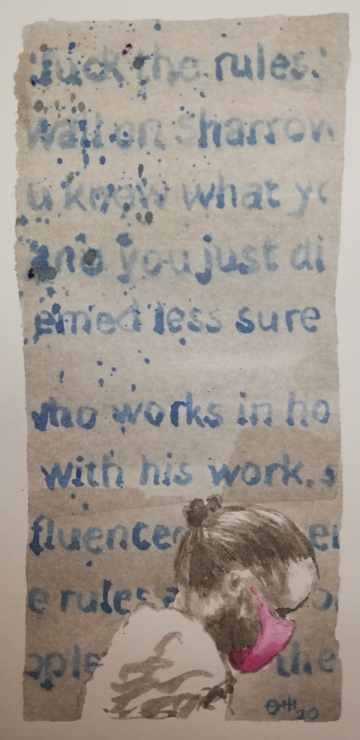 fuck the rules.
wall on Sharrow
u knew what yo
and you just di
emed less sure
who works in ho
with his work. s
fluence
e rules a
ople the
20